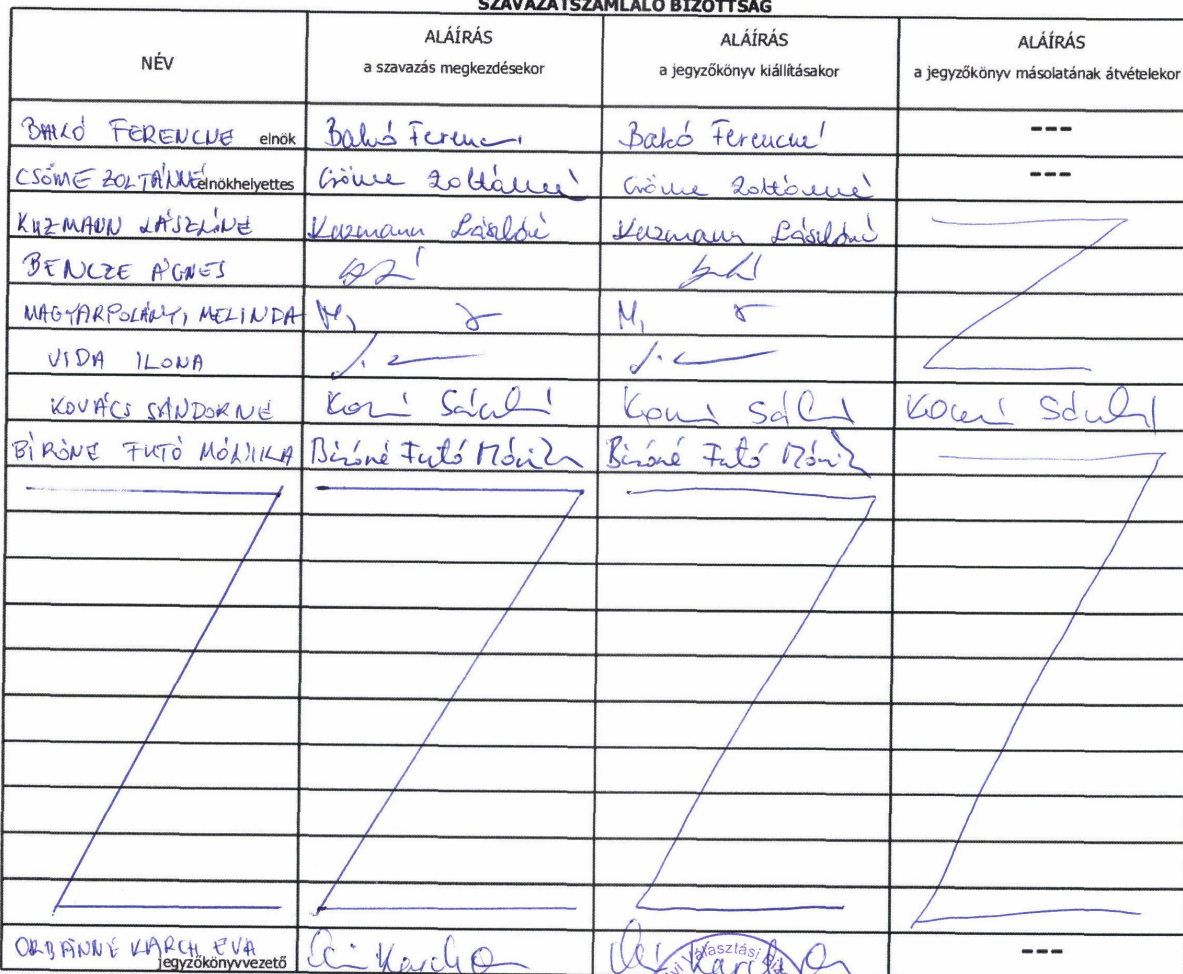 SZAVAZATSZÁMLÁLÓ BIZOTTSÁG
NÉV
ALÁÍRÁS
a szavazás megkezdésekor
ALÁÍRÁS
a jegyzőkönyv kiállításakor
ALÁÍRÁS
a jegyzőkönyv másolatának átvételekor
BAKÓ FERENCNE elnök Bakó Ferenc Bakó Ferencné ---
CSÖME ZOLTÁNNÉ elnökhelyettes Csöme Zoltánné Csöme Zoltánné ---
KUZMANN LÁSZLÓNE Kuzmann Lászlóné Kuzmann Lászlóné
BENCZE ÁGNES
MAGYARPOLÁNYI MELINDA M, M,
VIDA ILONA
KOVÁCS SÁNDORNÉ
BÍRÓNÉ FUTÓ MÓNIKA Bíróné Futó Mónik Bíróné Futó Mónik
ORBÁNNÉ KARCH ÉVA jegyzőkönyvvezető Karch Karch ---
Választási